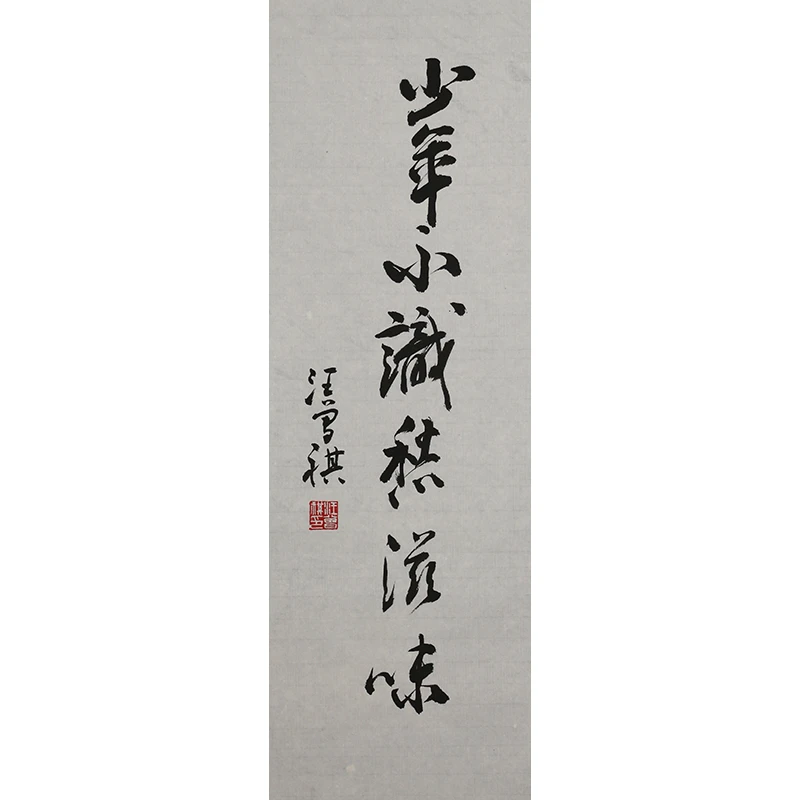 少年不識愁滋味
汪曾祺
汪曾祺印